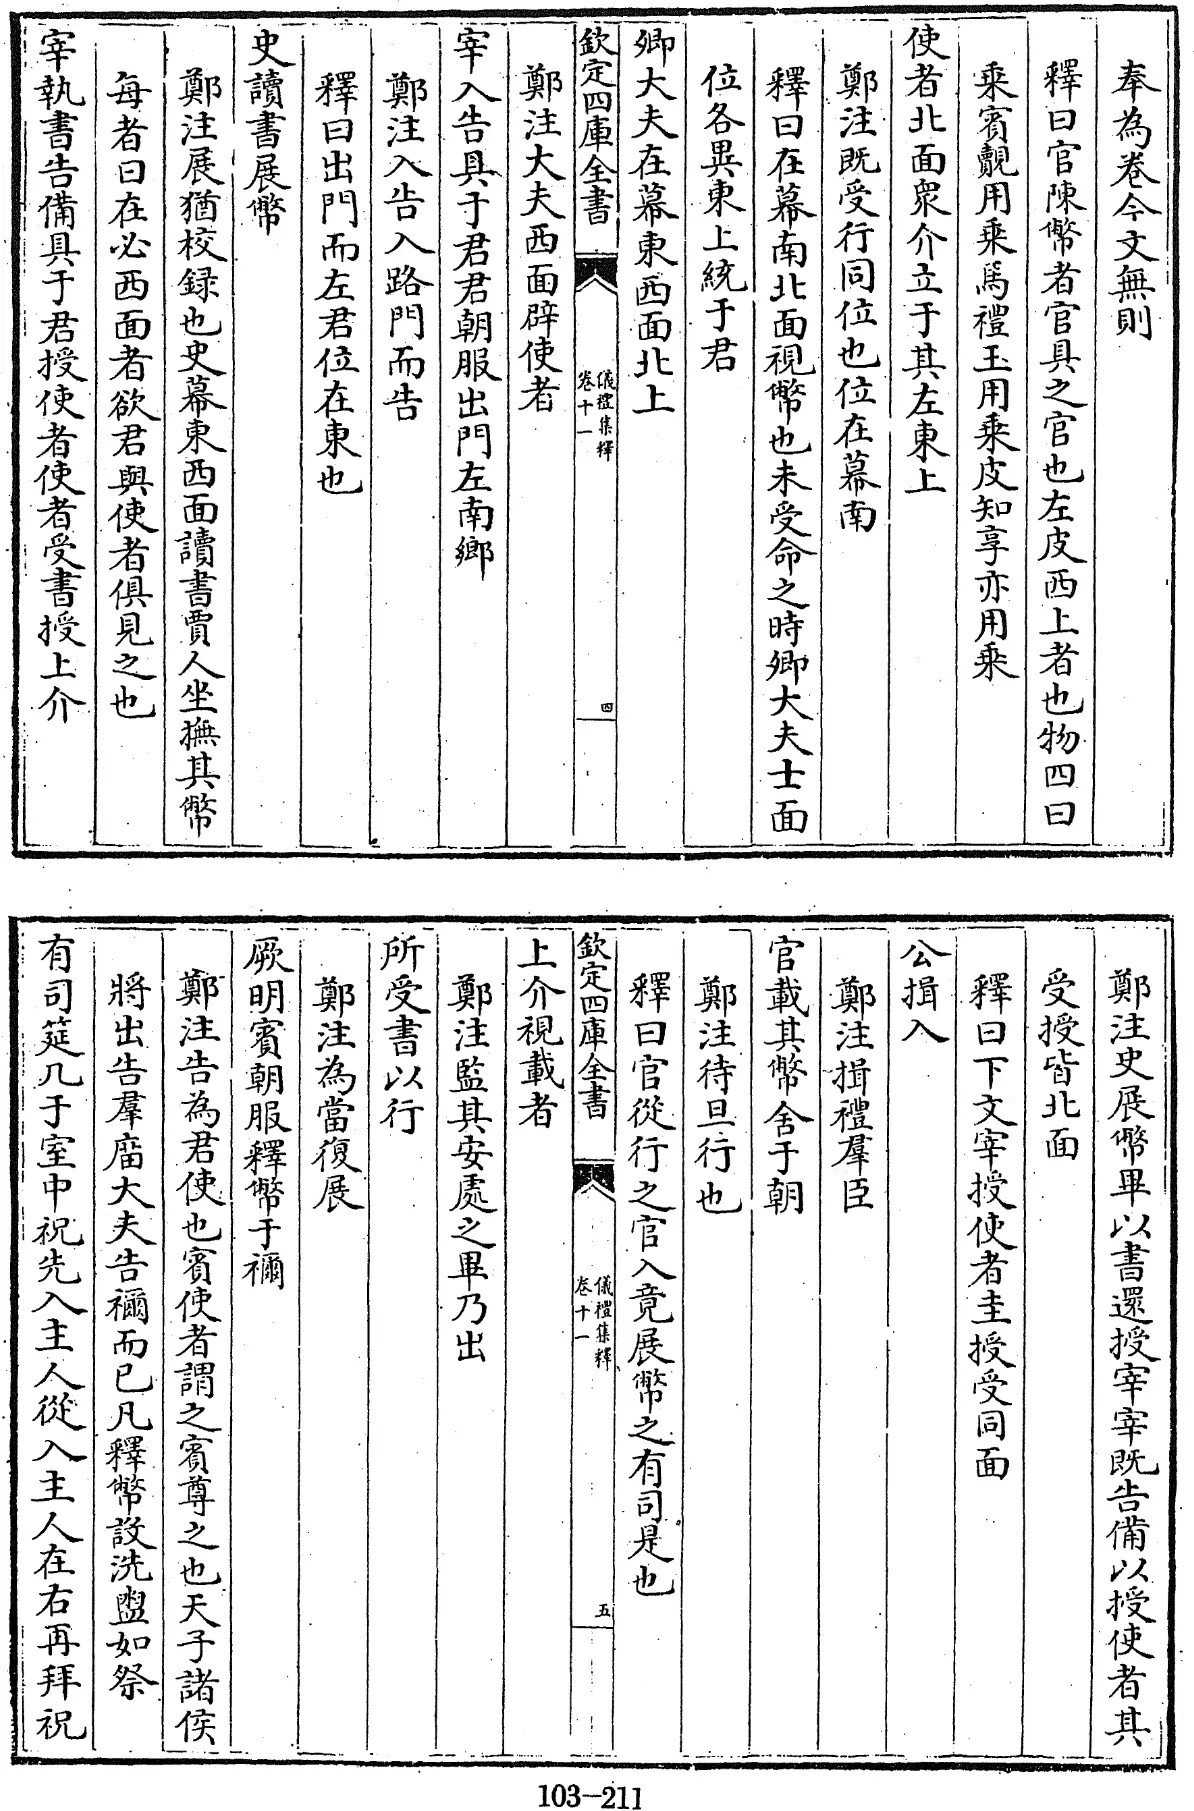 奉為卷今文無則
釋曰官陳幣者官具之官也左皮西上者也物四曰
乘賓覿用乘馬禮玉用乘皮知享亦用乘
使者北面衆介立于其左東上
鄭注既受行同位也位在幕南
釋曰在幕南北面視幣也未受命之時卿大夫士面
位各異東上統于君
卿大夫在幕東西面北上
欽定四庫全書
儀禮集釋
卷十一
四
鄭注大夫西面辟使者
宰入告具于君君朝服出門左南鄉
鄭注入告入路門而告
釋曰出門而左君位在東也
史讀書展幣
鄭注展猶校録也史幕東西面讀書賈人坐撫其幣
每者曰在必西面者欲君與使者俱見之也
宰執書告備具于君授使者使者受書授上介
鄭注史展幣畢以書還授宰宰既告備以授使者其
受授皆北面
釋曰下文宰授使者圭授受同面
公揖入
鄭注揖禮羣臣
官載其幣舍于朝
鄭注待旦行也
釋曰官從行之官入竟展幣之有司是也
欽定四庫全書
儀禮集釋
卷十一
五
上介視載者
鄭注監其安處之畢乃出
所受書以行
鄭注為當復展
厥明賓朝服釋幣于禰
鄭注告為君使也賓使者謂之賓尊之也天子諸侯
將出告羣廟大夫告禰而已凡釋幣設洗盥如祭
有司筵几于室中祝先入主人從入主人在右再拜祝
103-211